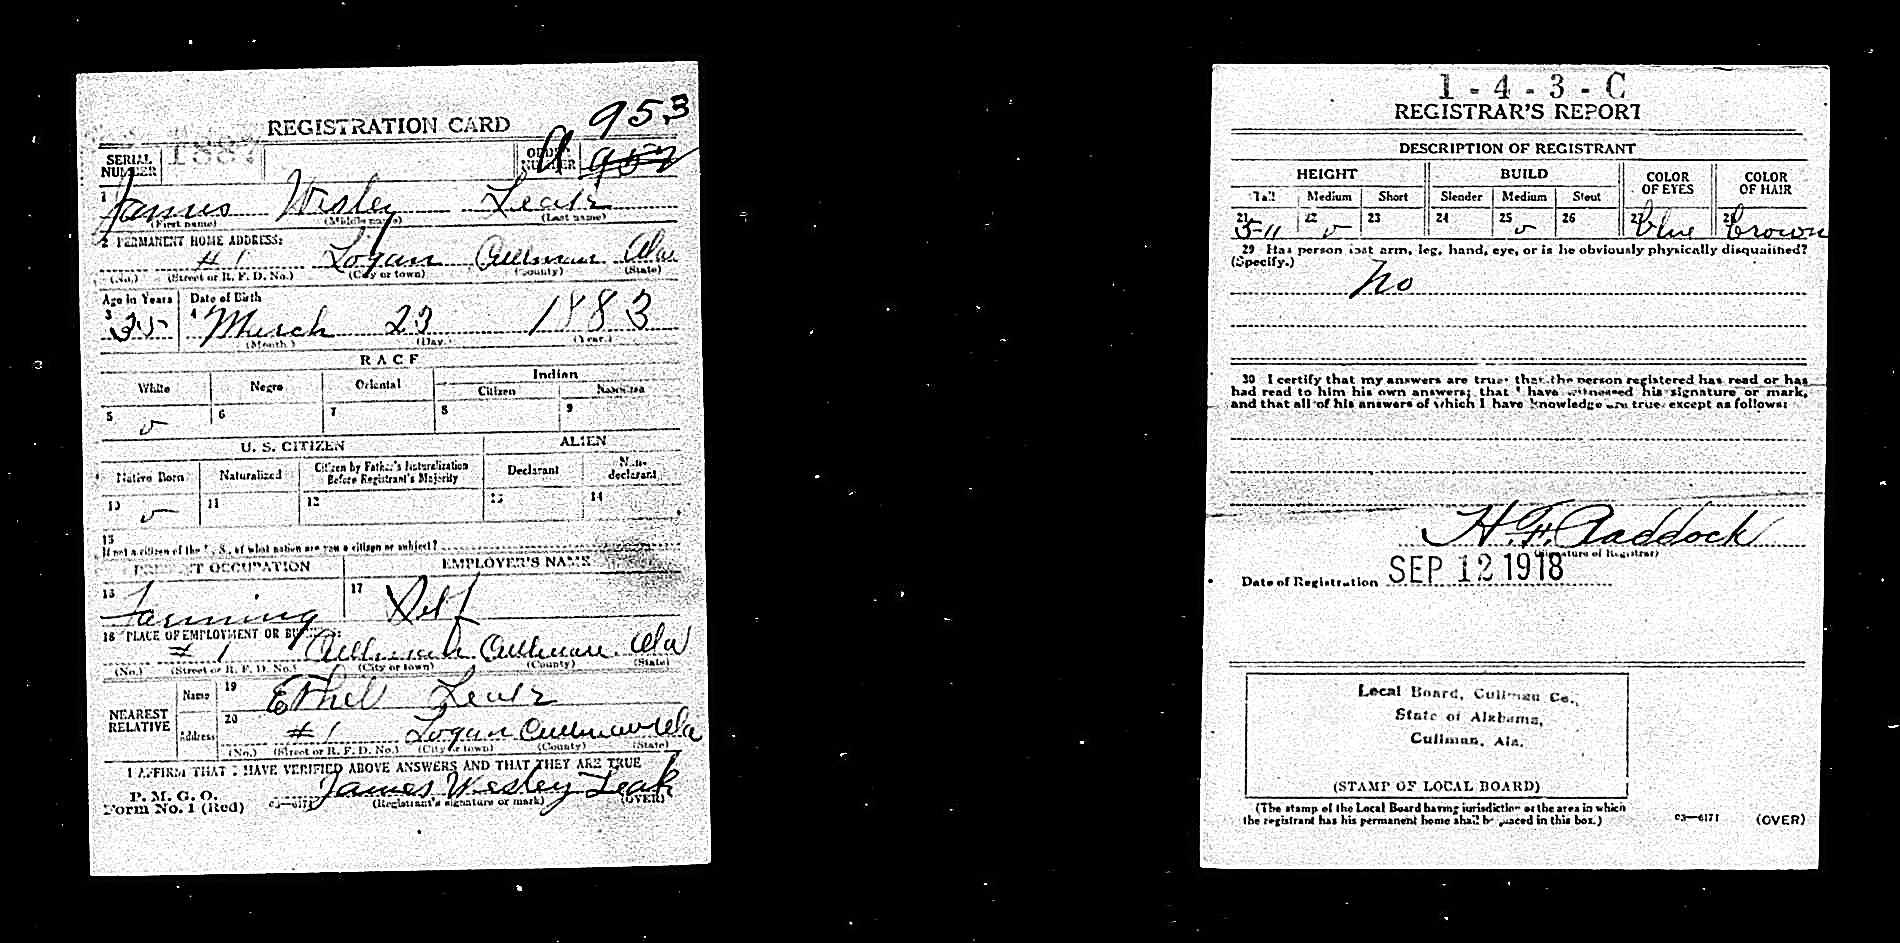 REGISTRATION CARD
953
SERIAL NUMBER 1887 ORDER NUMBER A 952
1 James Wesley Leak
(First name) (Middle name) (Last name)
2 PERMANENT HOME ADDRESS:
#1 Logan Cullman Ala
(No.) (Street or R. F. D. No.) (City or town) (County) (State)
Age in Years Date of Birth
3 35 4 March 23 1883
(Month.) (Day.) (Year.)
RACE
White Negro Oriental Indian
Citizen Noncitizen
5 v 6 7 8 9
U. S. CITIZEN ALIEN
Native Born Naturalized Citizen by Father's Naturalization Before Registrant's Majority Declarant Non-declarant
10 v 11 12 13 14
15
If not a citizen of the U. S., of what nation are you a citizen or subject?
PRESENT OCCUPATION EMPLOYER'S NAME
16 Farming 17 Self
18 PLACE OF EMPLOYMENT OR BUSINESS:
#1 Cullman Cullman Ala
(No.) (Street or R. F. D. No.) (City or town) (County) (State)
NEAREST RELATIVE
Name 19 Ethel Leak
Address 20 #1 Logan Cullman Ala
(No.) (Street or R. F. D. No.) (City or town) (County) (State)
I AFFIRM THAT I HAVE VERIFIED ABOVE ANSWERS AND THAT THEY ARE TRUE
P. M. G. O.
Form No. 1 (Red) 03—6171 James Wesley Leak
(Registrant's signature or mark) (OVER)
1-4-3-C
REGISTRAR'S REPORT
DESCRIPTION OF REGISTRANT
HEIGHT BUILD COLOR OF EYES COLOR OF HAIR
Tall Medium Short Slender Medium Stout
21 5-11 22 v 23 24 25 v 26 27 blue 28 brown
29 Has person lost arm, leg, hand, eye, or is he obviously physically disqualified?
(Specify.) No
30 I certify that my answers are true; that the person registered has read or has
had read to him his own answers; that I have witnessed his signature or mark,
and that all of his answers of which I have knowledge are true, except as follows:
(Signature of Registrar)
Date of Registration SEP 12 1918
Local Board, Cullman Co.,
State of Alabama,
Cullman, Ala.
(STAMP OF LOCAL BOARD)
(The stamp of the Local Board having jurisdiction of the area in which
the registrant has his permanent home shall be placed in this box.)
03—6171 (OVER)